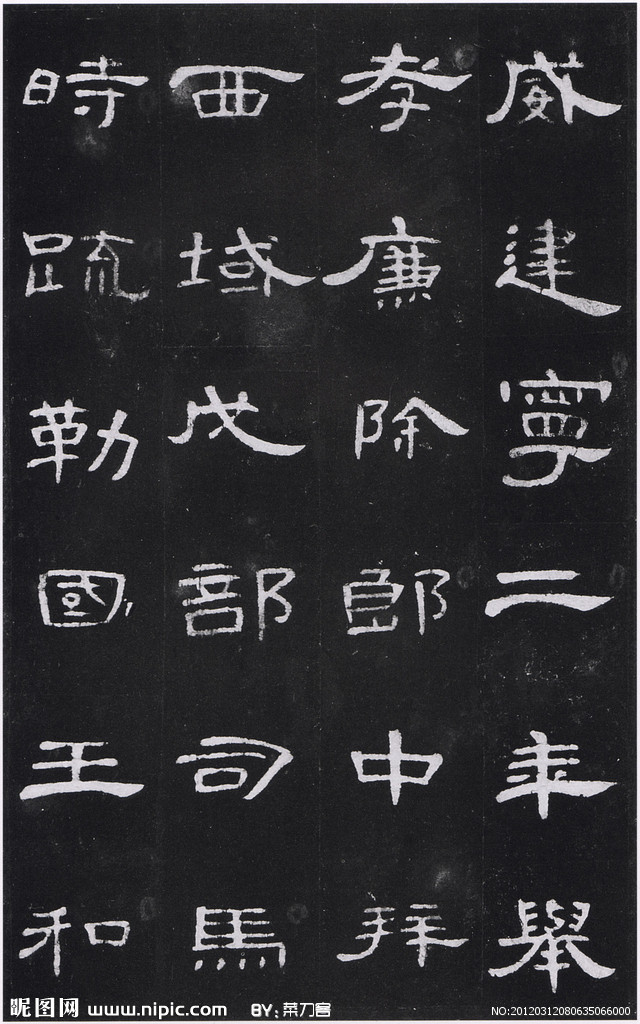 威建寧二年舉
孝廉除郎中拜
西域戊部司馬
時疏勒國王和
昵图网 www.nipic.com BY:菜刀客 NO:20120312080635066000